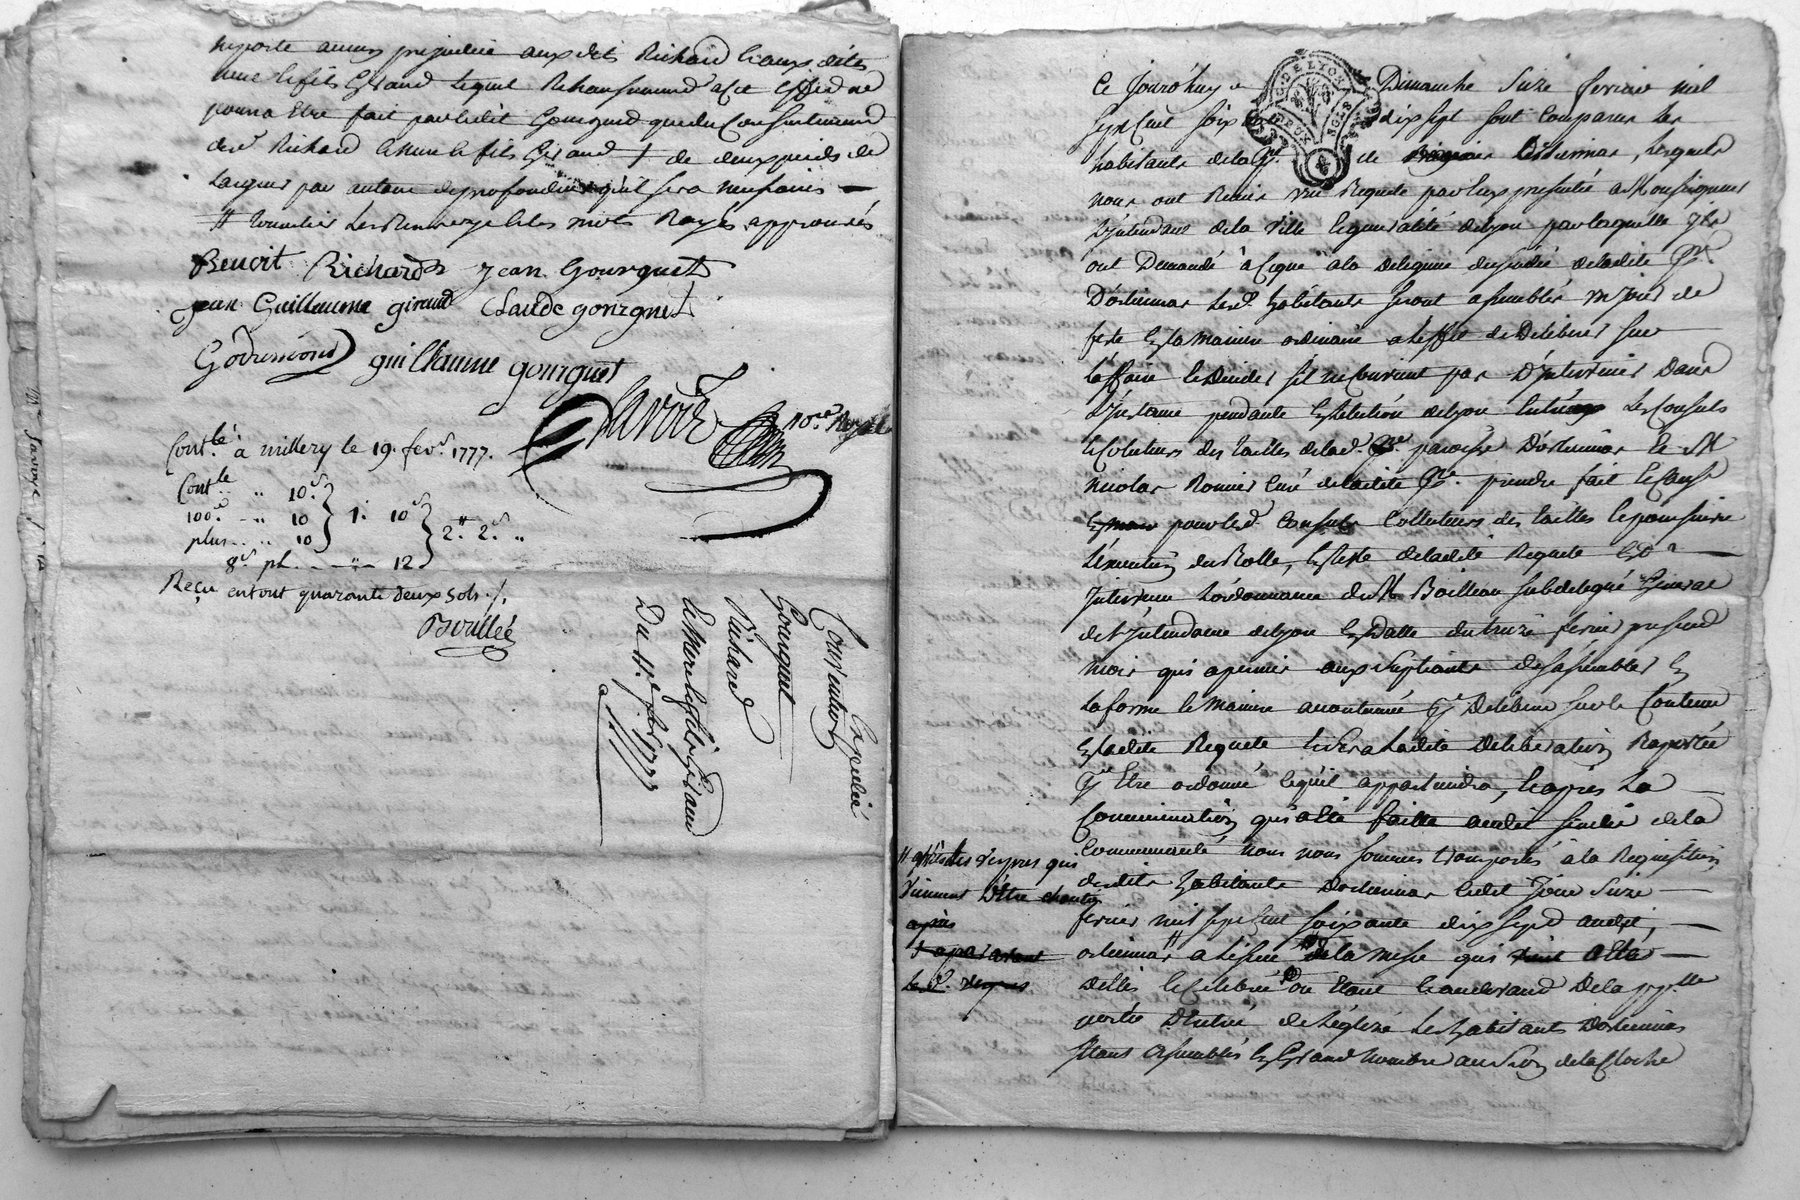 aporte aucun prejudice aux dits Richard
mere & fils Giraud lequel Rehaussement a cet effet ne
pourra Etre fait par ledit Gourguet que du Consentement
des Richard & mere & fils Giraud + de deux pieds de
largeur par autant de profondeur qu'il sera necessaire
# les Renvoys & les mots Rayés approuvés
Benoit Richard Jean Gourguet
jean Guillaume giraud Claude gourguet
guilhaume gourguet
Savoie Nore Royal
Contlé à millery le 19. fevr. 1777.
Contle .. .. 10.s
100.e .. .. 10 1. 10s
plus .. .. 10 2." 2.s ..
8s pl. .. 12
Reçu en tout quarante deux sols ./.
Boullée
Expediée
Convention
Gourguet
Richard &
la Mere & fils Giraud
Du 11e fer 1777
DE LYON
DEUX SOLS
G
Ce Jourdhuy Dimanche Seize fevrier mil
Sept Cent soixante dix sept sont Comparus les
habitants de la de dorliennas, lesquels
nous ont Remis une Requete par Eux presentée a Monseigneur
L'Intendant de la Ville & generalité de Lyon par laquelle Ils
ont Demandé à Ce que à la diligence du sindic de ladite
D'orliennas les d. habitants seront assemblés un Jour de
feste En la maniere ordinaire a l'effet de Deliberer sur
l'affaire & decider s'il ne Convient pas D'Intervenir Dans
L'Instance pendante En l'election de Lyon Entre les Consuls
& Collecteurs des tailles de lad. paroisse D'orliennas & M
nicolas Ronier Curé de ladite prendre fait & Cause
pour les d. Consuls Collecteurs des tailles & poursuivre
l'execution du Rolle, En suitte de ladite Requete Est
Intervenu l'ordonnance de M Boilleau subdelegué General
de l'Intendance de Lyon En Datte du treize fevrier present
mois qui a permis aux supliants de s'assembler En
la forme & Maniere accoutumée pr Deliberer sur le Contenu
En ladite Requete & sera ladite deliberation Raportée
pr Etre ordonné Ce qu'il appartiendra, & après La
Communication qui a été faitte audit sindic de la
Communauté nous nous sommes transportés à la Requisition
desdits habitants dorliennas Cedit Jour Seize
fevrier mil sept Cent soixante dix sept audit,
orliennas # a l'issue de la messe qui a Eté
dittes & Celebrée ou Etant & au devant De la pple
porte D'Entrée de l'eglize les habitants Dorliennas
Etant assemblés En Grand nombre au Son de la Cloche
# après les Vepres qui
Viennent D'être chantés
après
+ auparavant
les d. Vepres